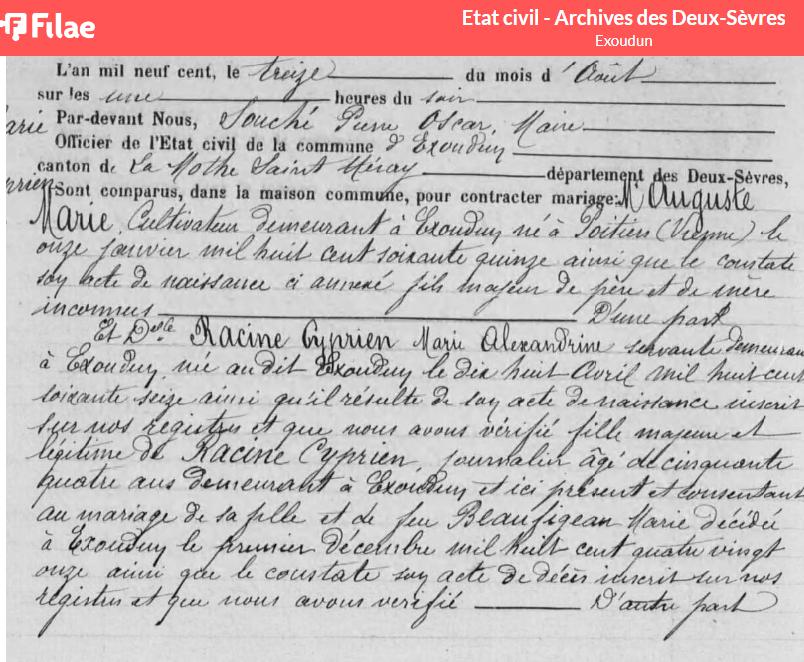 Filae
Etat civil - Archives des Deux-Sèvres
Exoudun
L'an mil neuf cent, le treize du mois d'Août
sur les une heures du soir
arié Par-devant Nous, Souché Pierre Oscar, Maire
Officier de l'Etat civil de la commune d'Exoudun
canton de La Mothe Saint Héray département des Deux-Sèvres,
prien Sont comparus, dans la maison commune, pour contracter mariage: Mr Auguste
Marie, Cultivateur demeurant à Exoudun né à Poitiers (Vienne) le
onze janvier mil huit cent soixante quinze ainsi que le constate
son acte de naissance ci annexé fils majeur de père et de mère
inconnus D'une part
Et Delle Racine Cyprien Marie Alexandrine servante demeurant
à Exoudun, née au dit Exoudun le dix huit Avril mil huit cent
soixante seize ainsi qu'il résulte de son acte de naissance inscrit
sur nos registres et que nous avons vérifié fille majeure et
légitime de Racine Cyprien, journalier âgé de cinquante
quatre ans demeurant à Exoudun et ici présent et consentant
au mariage de sa fille et de feu Beaufigeau Marie décédée
à Exoudun le premier Décembre mil huit cent quatre vingt
onze ainsi que le constate son acte de décès inscrit sur nos
registres et que nous avons vérifié D'autre part